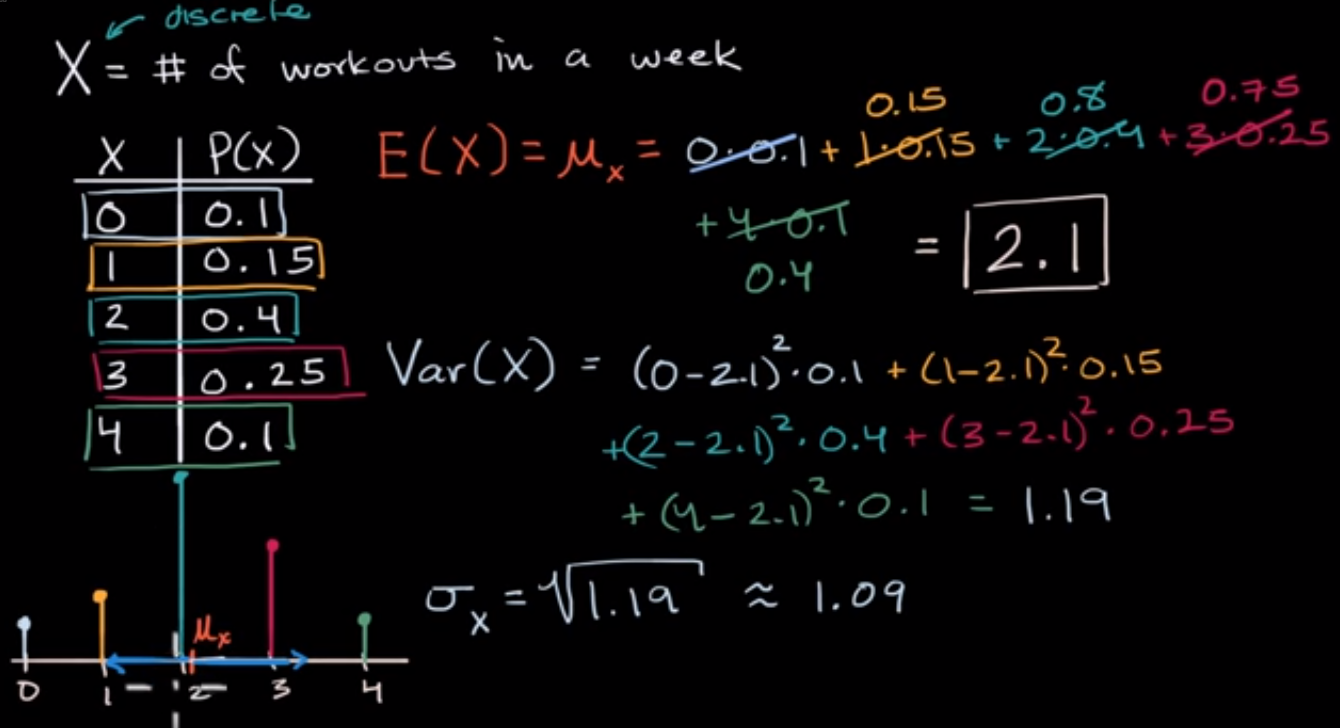 discrete
X = # of workouts in a week
0.15 0.8 0.75
X P(X) E(X) = μₓ = 0·0.1 + 1·0.15 + 2·0.4 + 3·0.25
0 0.1 + 4·0.1 = 2.1
0.4
1 0.15
2 0.4
3 0.25 Var(X) = (0-2.1)²·0.1 + (1-2.1)²·0.15
4 0.1 +(2-2.1)²·0.4 + (3-2.1)²·0.25
+ (4-2.1)²·0.1 = 1.19
σₓ = √1.19 ≈ 1.09
μₓ
0 1 2 3 4